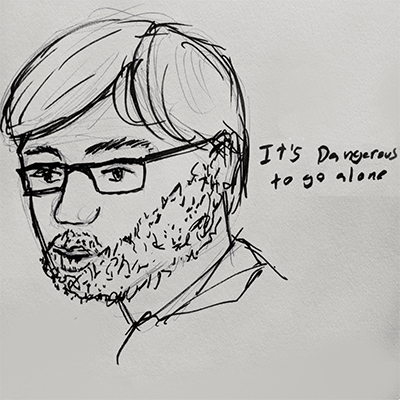 It's Dangerous
to go alone